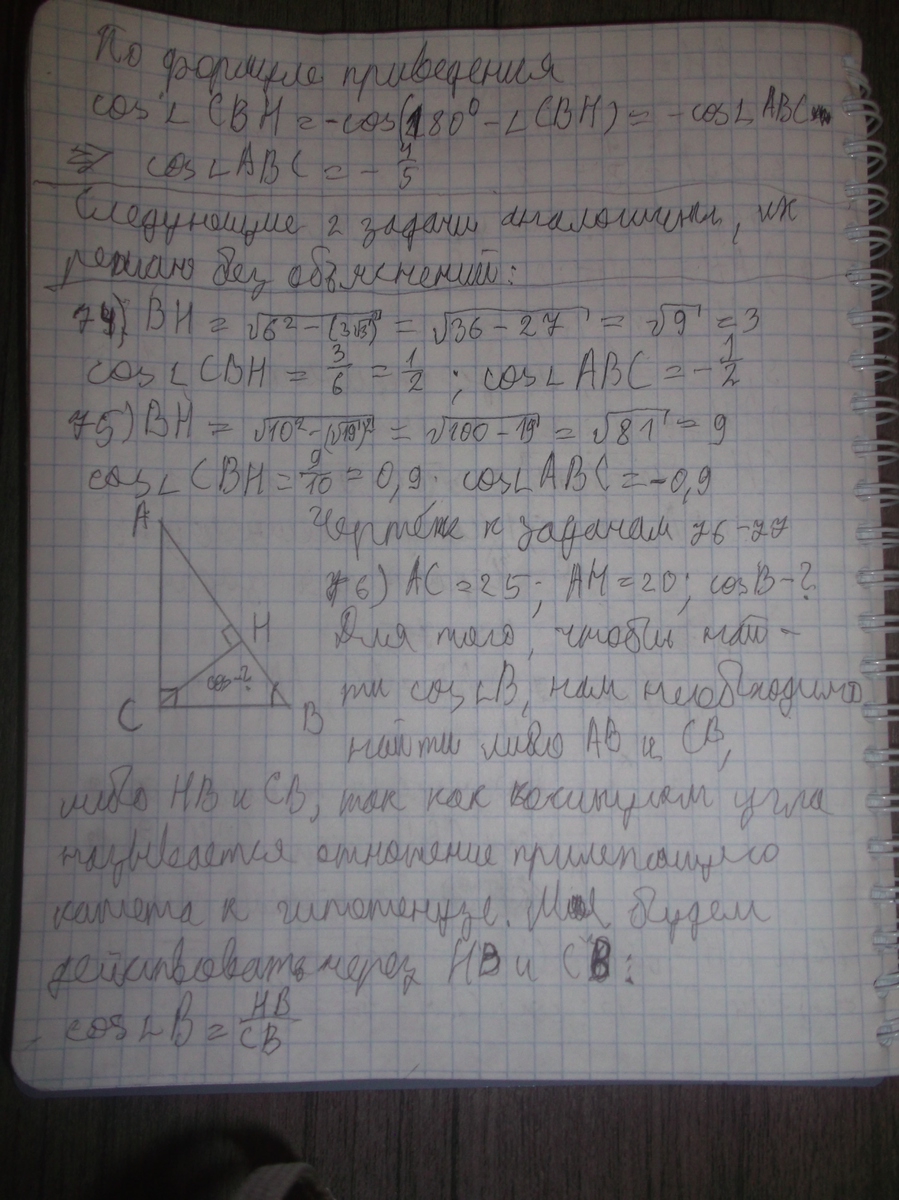 По формуле приведения
cos∠CBH = -cos(180° - ∠CBH) = -cos∠ABC
=> cos∠ABC = -1/5
Следующие 2 задачи аналогичны, их
решаю без объяснений:
74) BH = √(6² - (3√3)²) = √(36 - 27) = √9 = 3
cos∠CBH = 3/6 = 1/2 ; cos∠ABC = -1/2
75) BH = √(10² - (√19)²) = √(100 - 19) = √81 = 9
cos∠CBH = 9/10 = 0,9. cos∠ABC = -0,9
Чертёж к задачам 76-77
A
76) AC = 25; AH = 20; cosB - ?
H
Для того, чтобы най-
cos-?
C
B
ти cos∠B, нам необходимо
найти либо AB и CB,
либо HB и CB, так как косинусом угла
называется отношение прилежащего
катета к гипотенузе. Мы будем
действовать через HB и CB:
cos∠B = HB/CB